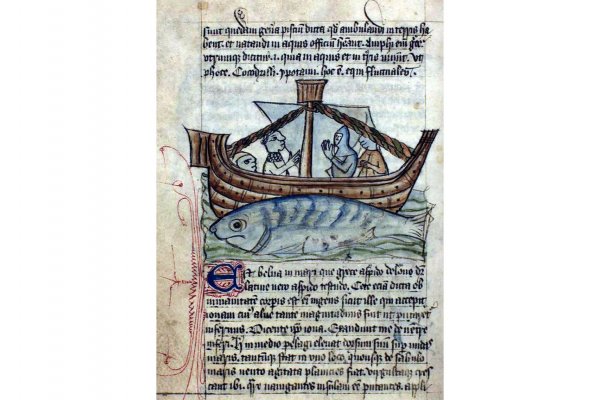 sunt quedam gen̄a pisciū dicta qd̄ ambulandi in terris ha
bent. et natandi in aquis officiū Amphi em̄
dicitur. i. quia in aquis et in t̄ris uiuūt. Vt
phoce. Cocodrilli. ypotami. hoc ē. equi fluctuales.
Est belua in mari que grece aspido delone dr̄
latine uero aspido testudo. Cete eciā dicta ob
inmanitatē corpis est ei ingens sicut ille qui accepit
ionam cui' alue tante magnitudinis fuit ut putaret
infernus. Dicente ip̄o iona. Exaudiuit me de uentre
inferi. h̄ in medio pelagi eleuat dorsum suū sup undas
maris. tantūque stat in uno loco, quousque de sabulo
maris uento agitata planicies fiat. cres
cant ibi. Qr̄ nauigantes insulam eē putantes. appli